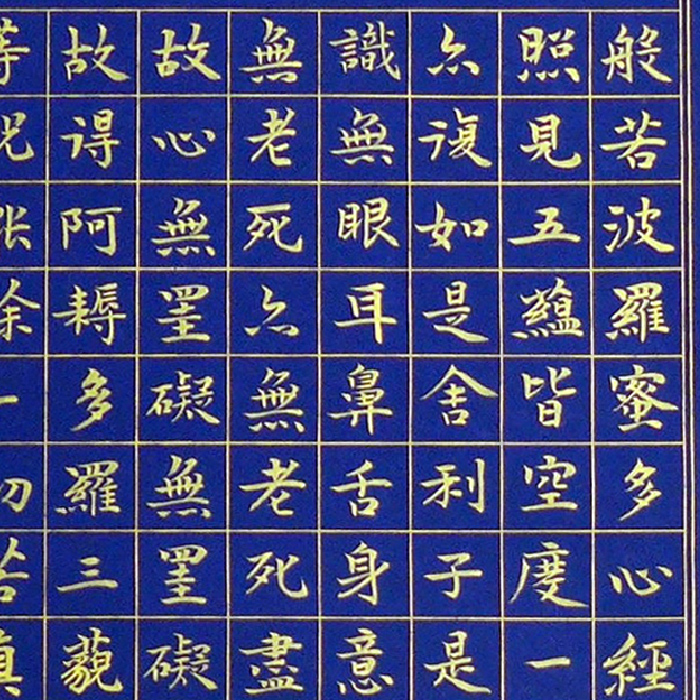 般若波羅蜜多心經
照見五蘊皆空度一
亦復如是舍利子是
識無眼耳鼻舌身意
無老死亦無老死盡
故心無罣礙無罣礙
故得阿耨多羅三藐
等呪能除一切苦真